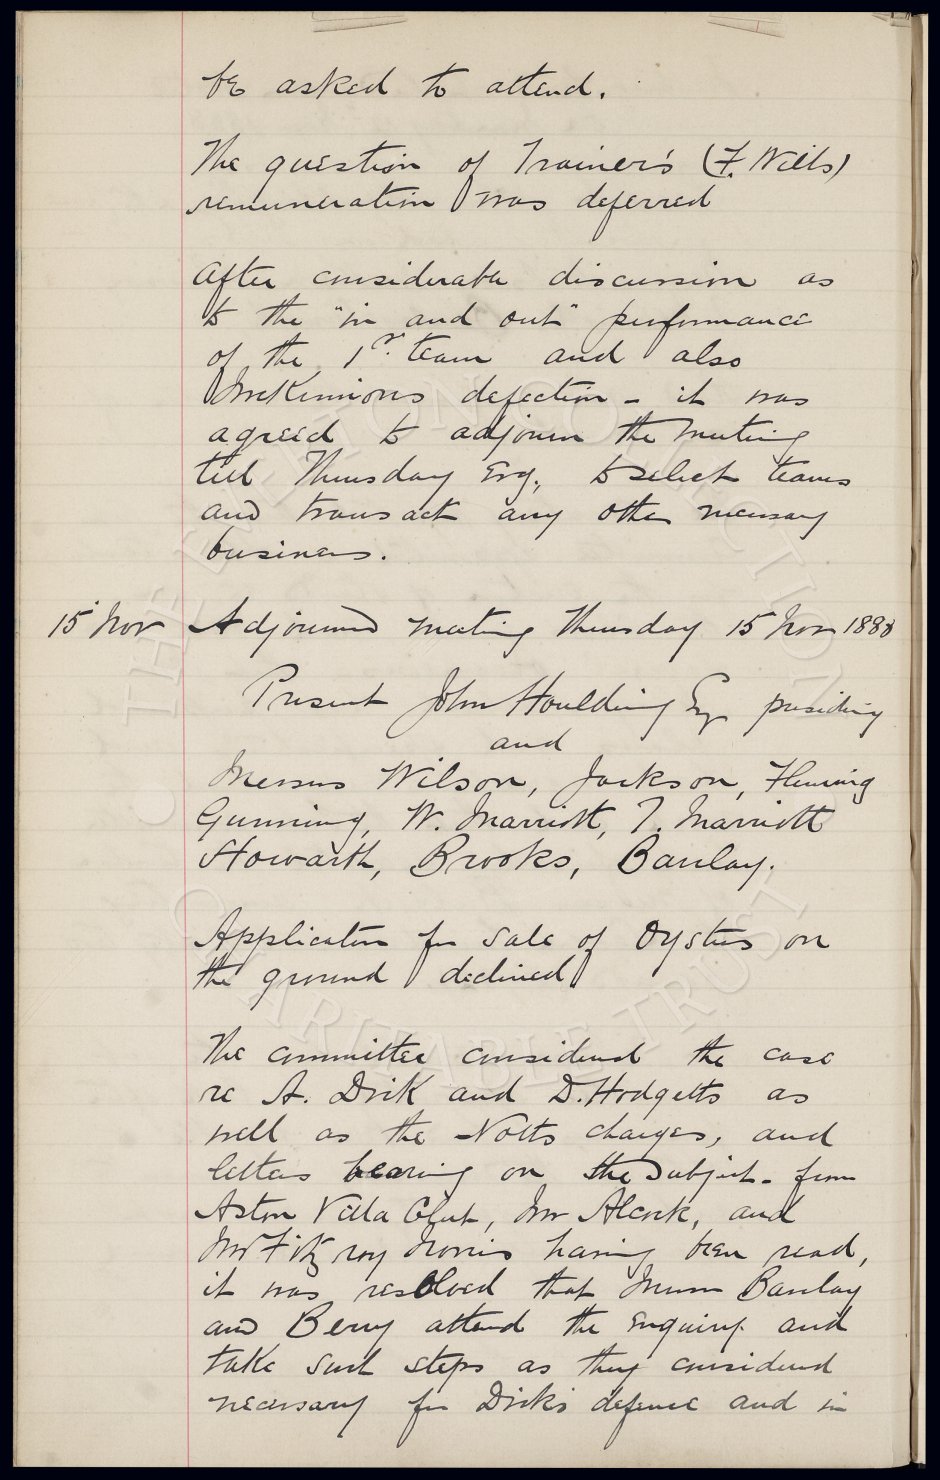 be asked to attend.
The question of Trainer's (F. Wills)
remuneration was deferred
After considerable discussion as
to the "in and out" performance
of the 1st team and also
McKinnions defection - it was
agreed to adjourn the meeting
till Thursday Evg, to select teams
and transact any other necessary
business.
15 Nov Adjourned meeting Thursday 15 Nov 1888
Present John Houlding Esq presiding
and
Messrs Wilson, Jackson, Fleming
Gunning, W. Marriott, T. Marriott
Howarth, Brooks, Barclay.
Application for Sale of Oysters on
the ground declined
The committee considered the case
re A. Dick and D. Hodgetts as
well as the Notts charges, and
letters bearing on the subject - from
Aston Villa Club, Mr Alcock, and
Mr Fitzroy Norris having been read,
it was resolved that Messrs Barclay
and Berry attend the Enquiry and
take such steps as they considered
necessary for Dick's defence and in
THE EVERTON COLLECTION
CHARITABLE TRUST